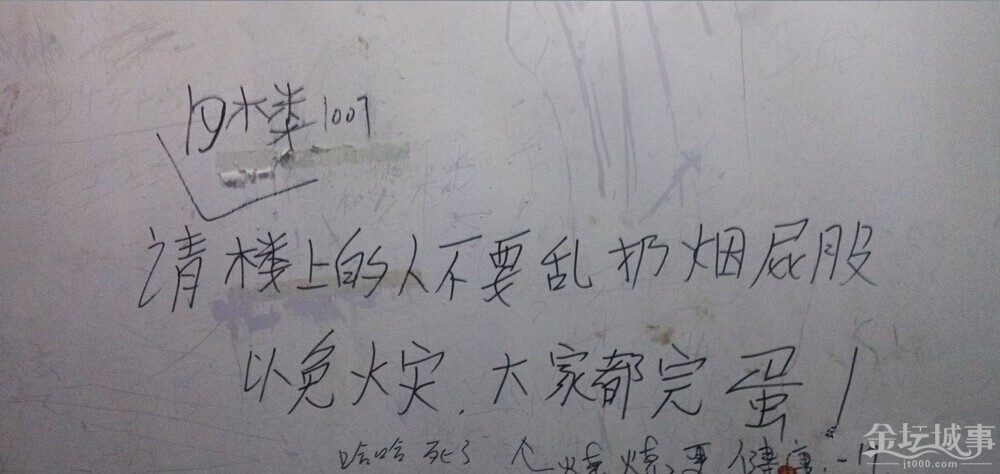 1007
请楼上的人不要乱扔烟屁股
以免火灾.大家都完蛋!
哈哈死了 烧烧更健康
金坛城事
jt000.com